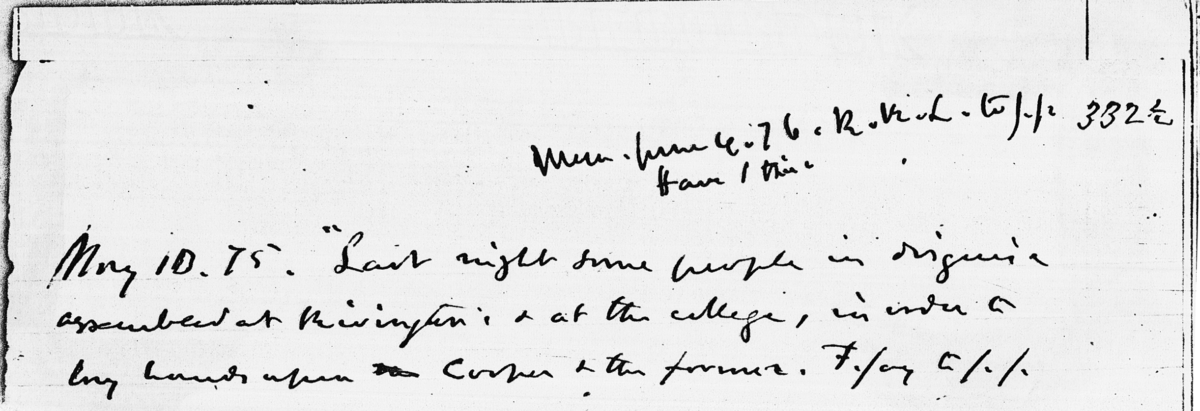 Mem. June 4. 76. R. R. L. to J. J. 332½
Have I this
May 10. 75. "Last night some people in disguise
assembled at Rivington's & at the college, in order to
lay hands upon Cooper & the former. F. Jay to J. J.